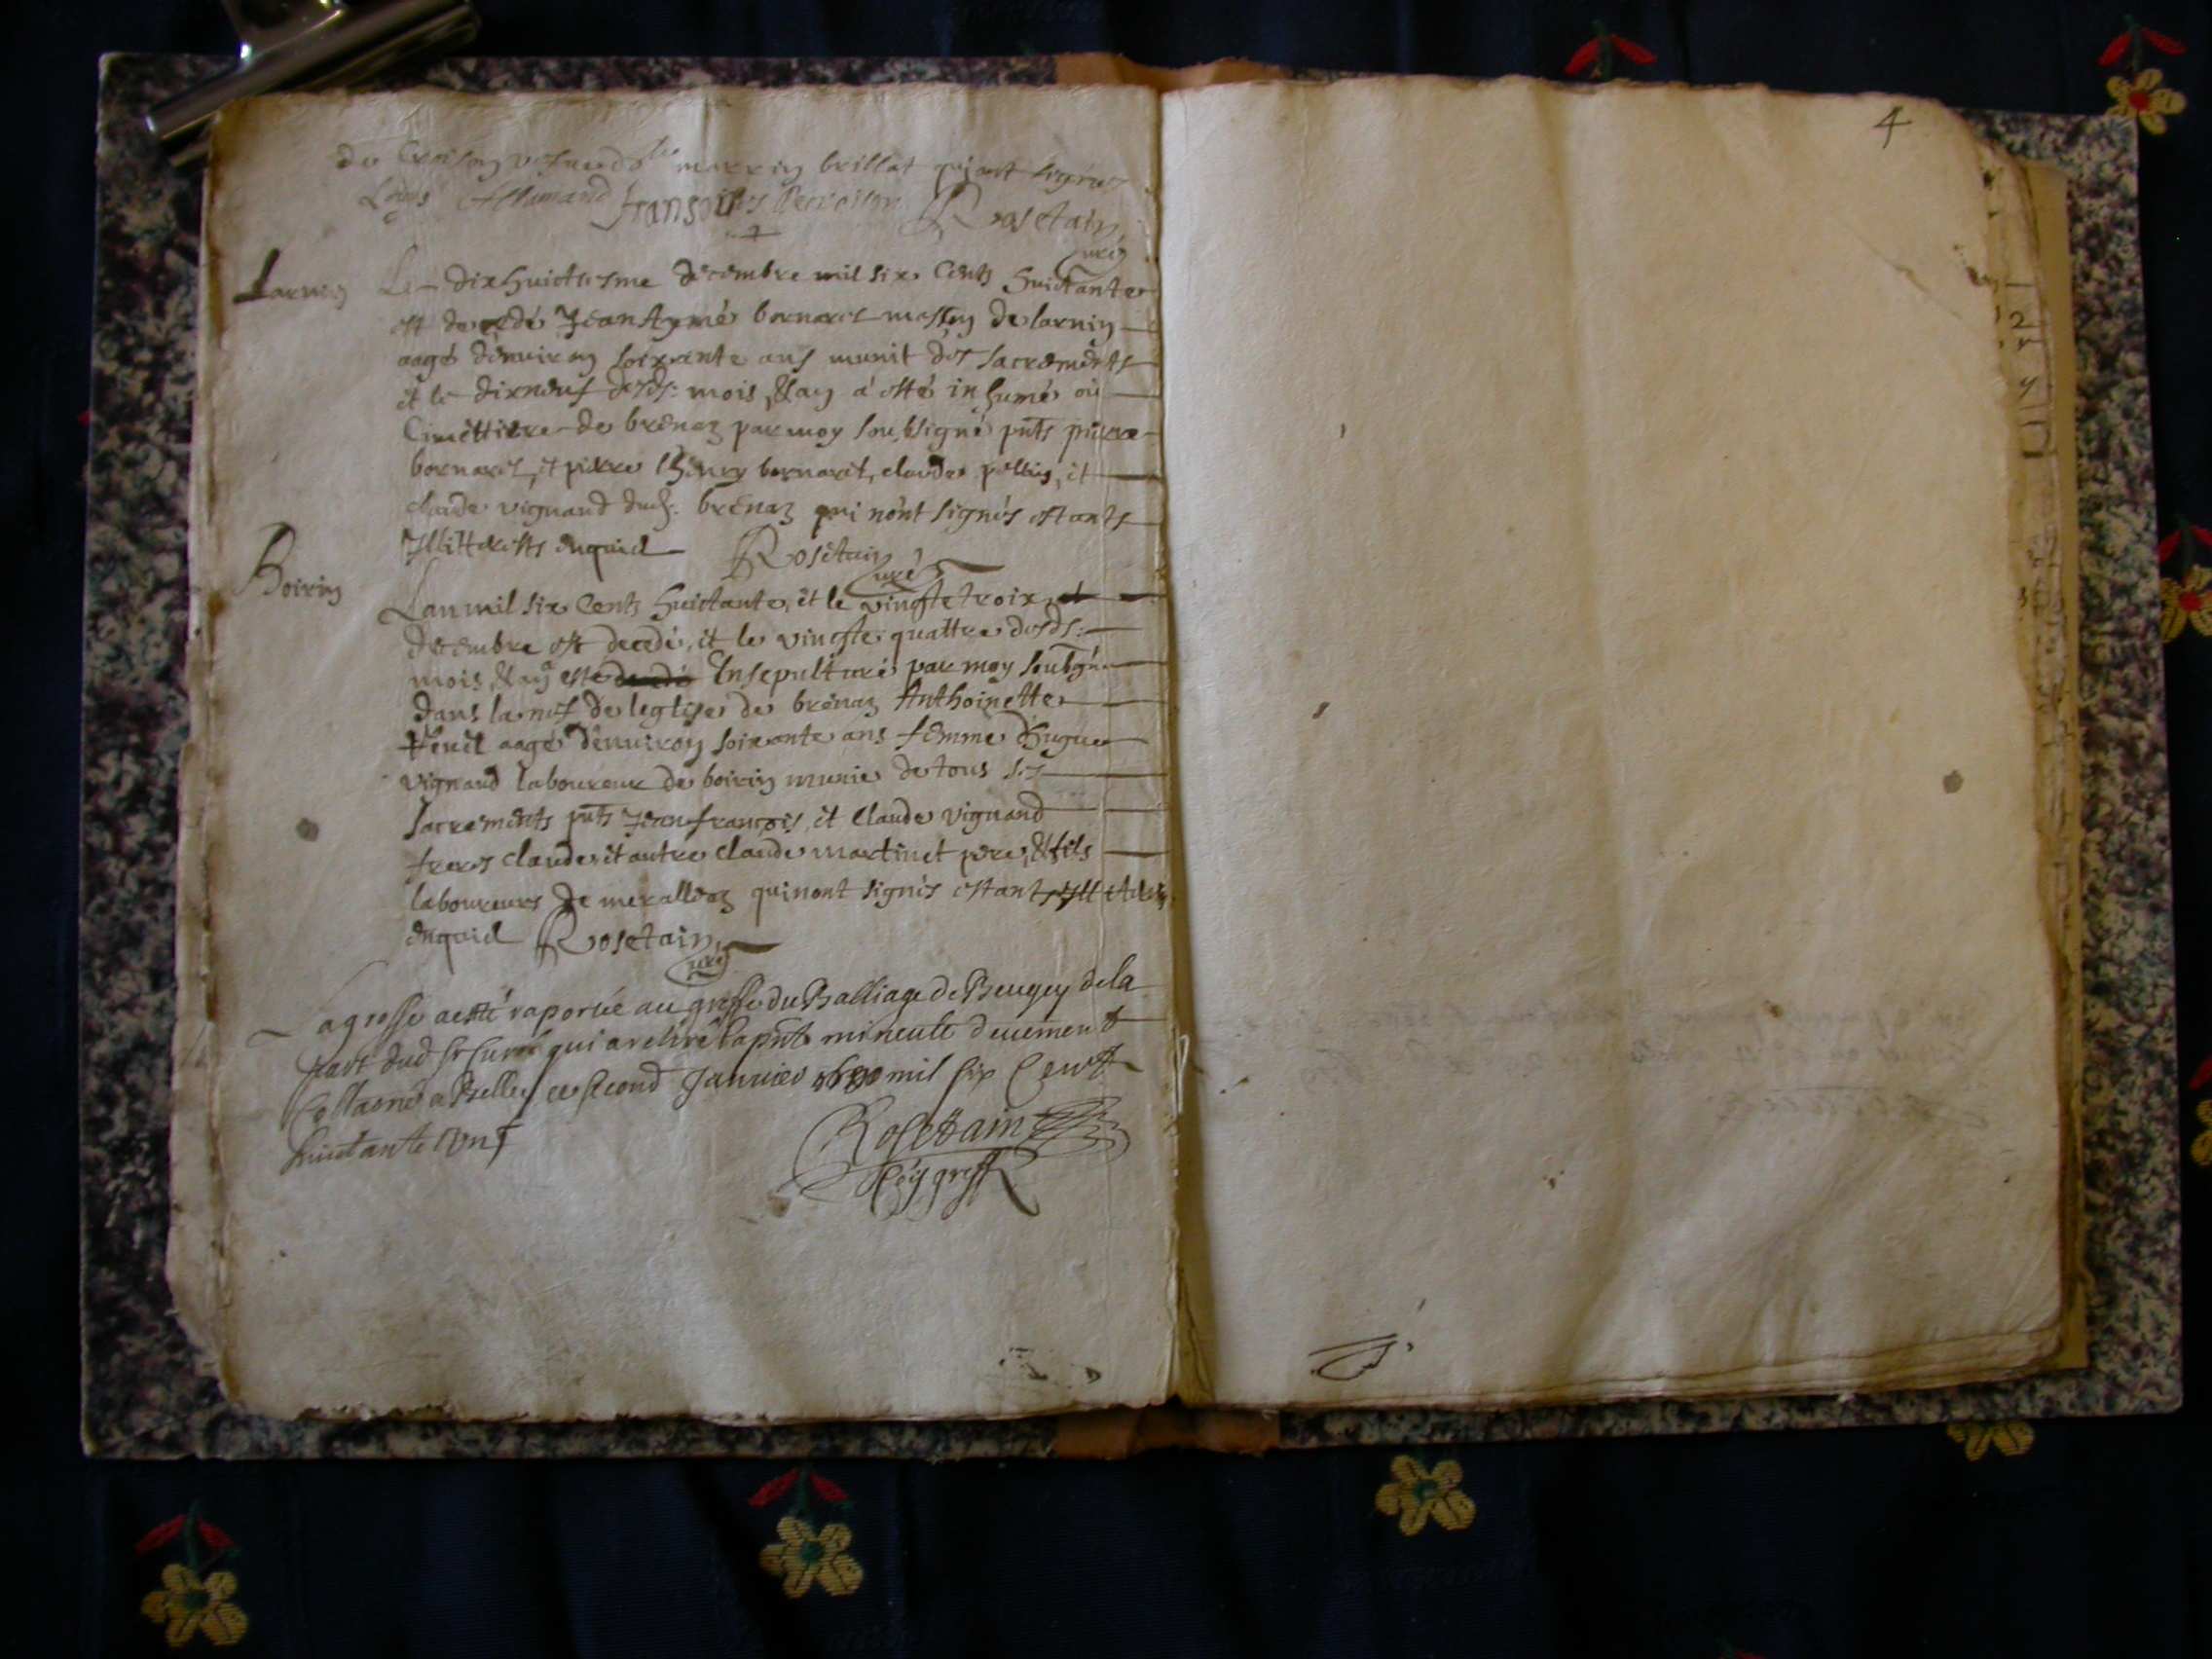 4
marrin brillat qui ont signés
Louis Allemand fransois Rosetain
curé
Larnin Le dixhuictiesme decembre mil six Cents huictante
est decedé Jean Aymé bornarel masson de larnin
aagé denuiron soixante ans munit des sacrements
et le dixneuf desds: mois, & an a esté inhumé où
Cimettiere de brenaz par moy soubsigné pnts pierre
bornarel, et pierre Henry bornarel, claude et
claude vignand dud: brenaz qui nont signés estants
Illitteres enquis Rosetain
curé
Boirin Lan mil six Cents huictante, et le vingte troix
decembre est decedé, et le vingte quattre desds:
mois, & an esté decedé Ensepulturé par moy soubsgné
dans la nef de leglise de brenaz Anthoinette
aagé denuiron soixante ans femme dhugue
vignand laboureur de boirin munie de tous ses
sacrements pnts Jean francois, et Claude vignand
freres claude et autre claude martinet pere, & fils
laboureurs de qui nont signés estants
enquis Rosetain
curé
La grosse a esté raportée au greffe du Balliage de Beugey de la
part dud Sr Curé qui a retiré la pnte mineute deuement
a Belley ce second Januier mil six Cent
huictante Un
Rosettain
greff